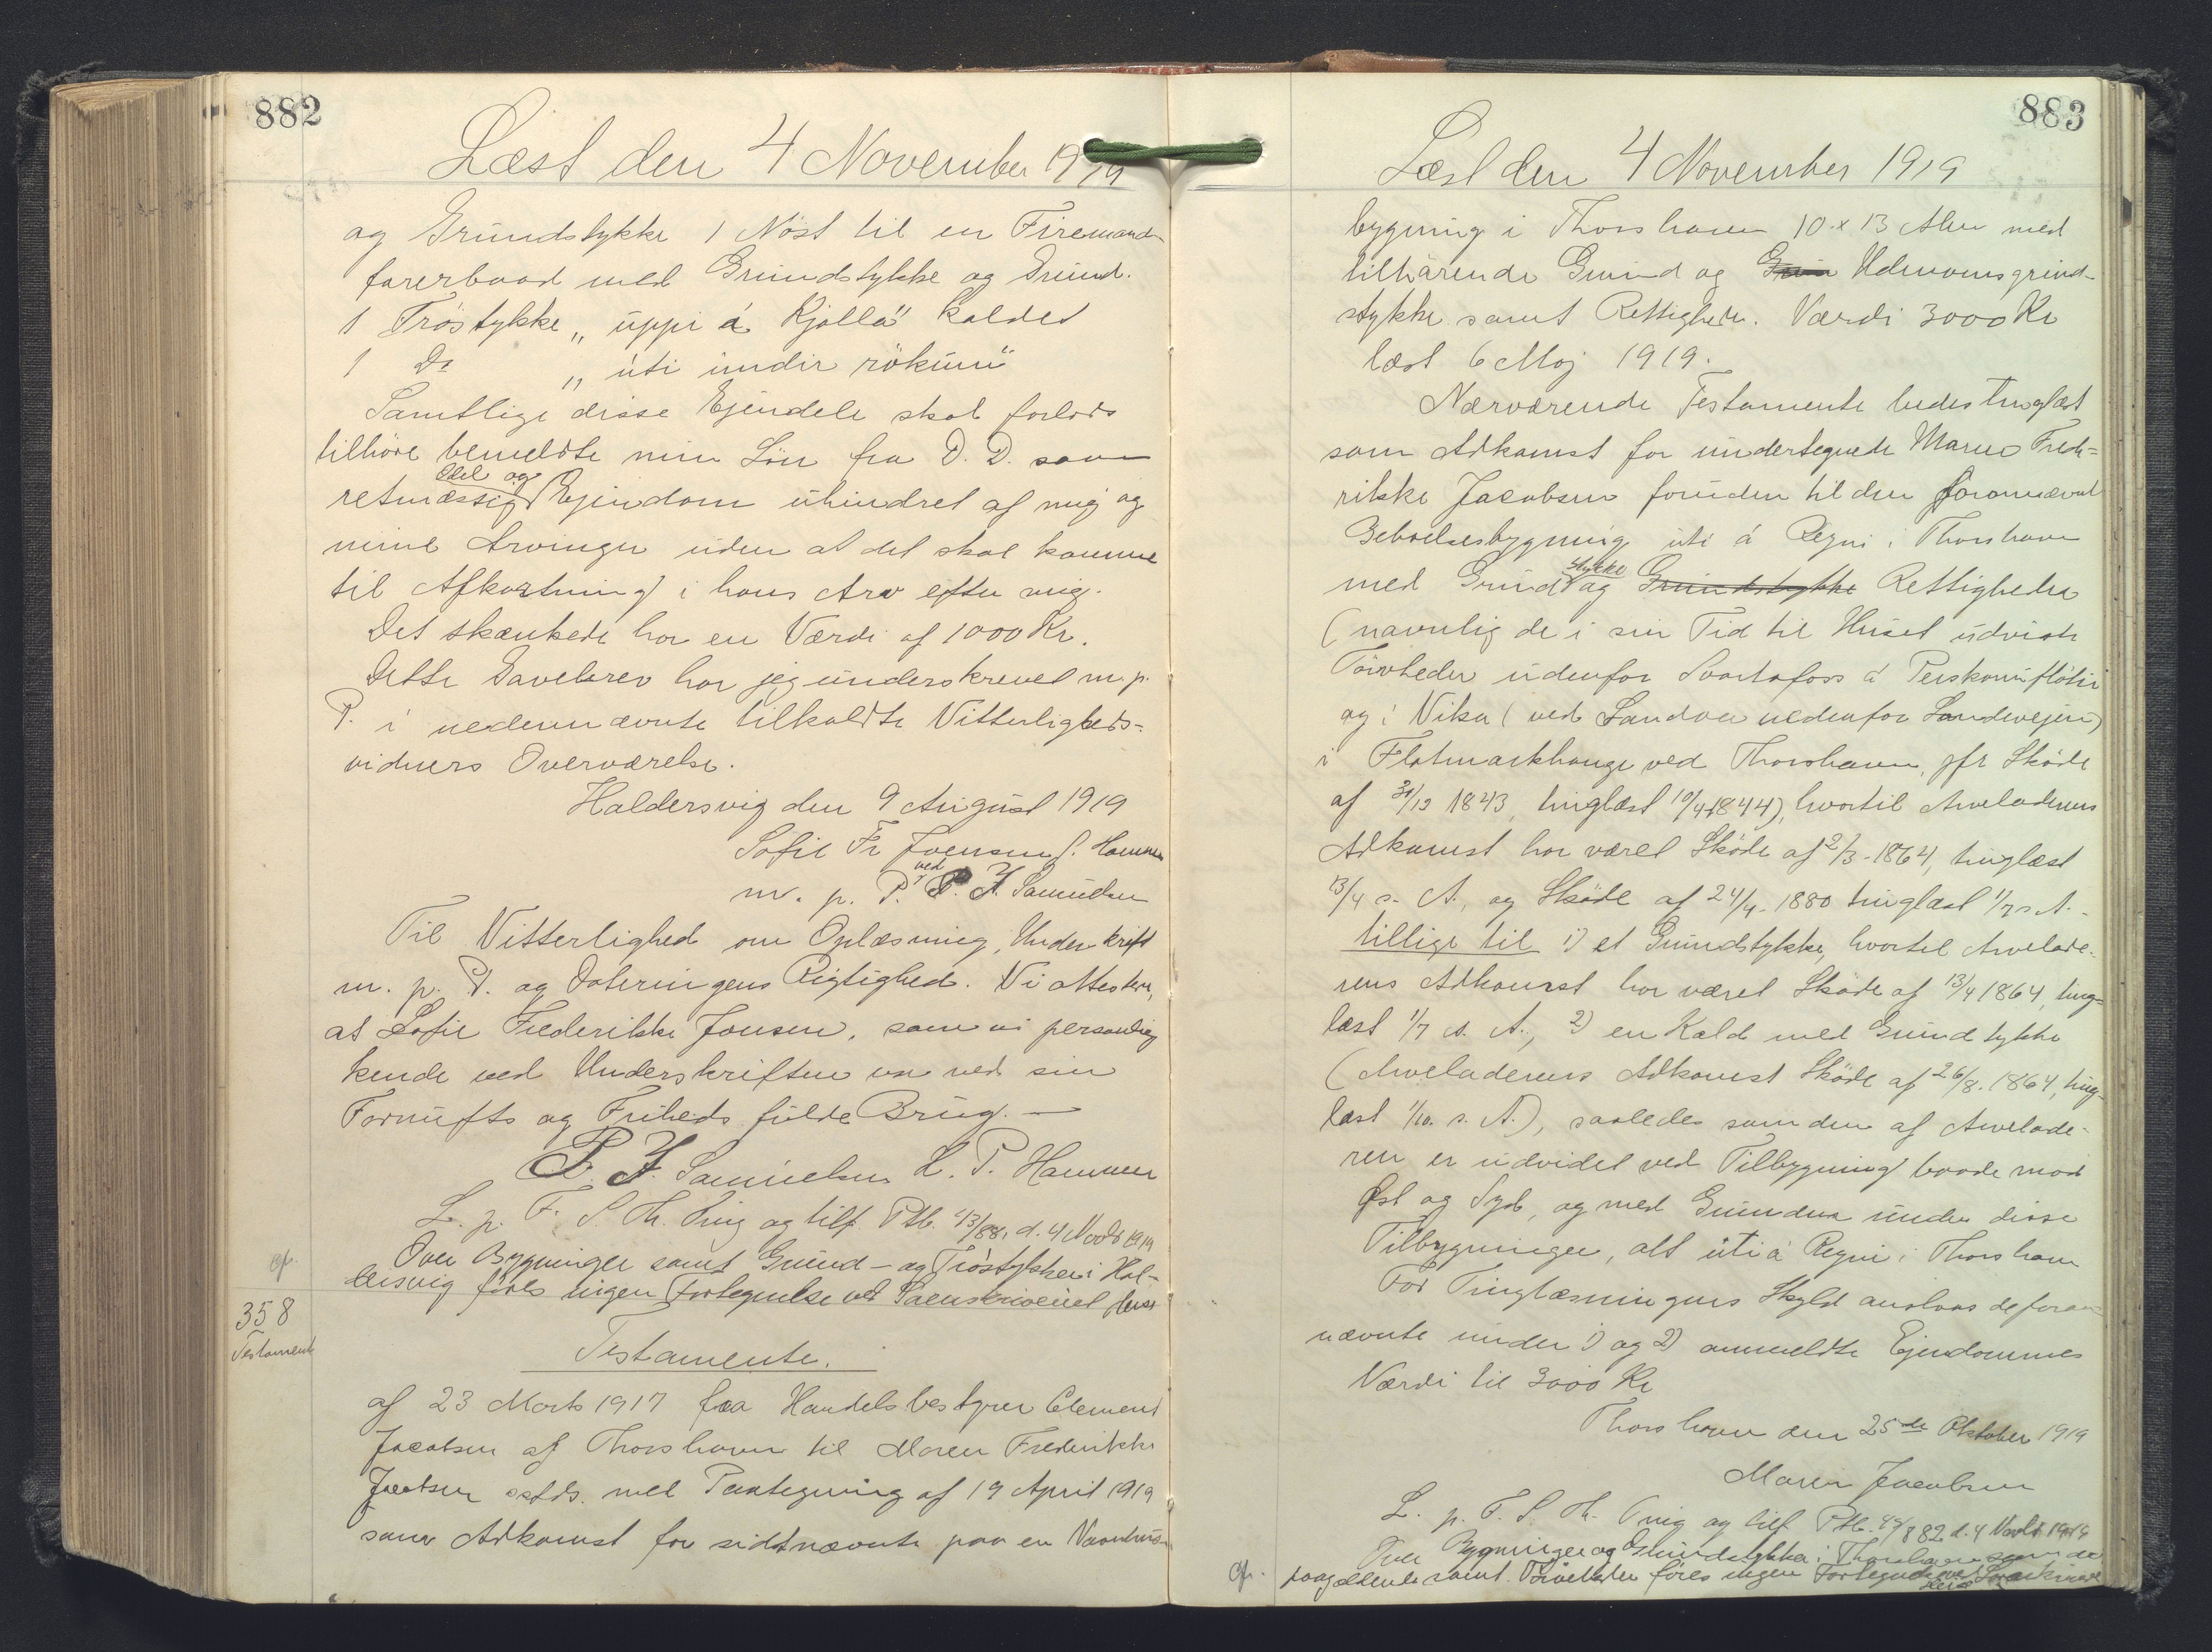 882
Læst den 4 November 1919
og Grundstykke 1 Nøst til en Firemands-
farerbaad med Grundstykke og Grund.
1 Trøstykke „uppi á Kjølla" kaldet
1 Do „úti undir rökunu"
Samtlige disse Ejendele skal forlods
tilhöre bemeldte min Sön fra D. D. som
retmæssig Odel og Ejendom uhindret af mig og
mine Arvinger uden at det skal komme
til Afkortning i hans Arv efter mig.
Det skænkede har en Værdi af 1000 Kr.
Dette Gavebrev har jeg underskrevet m. p.
P. i nedennævnte tilkaldte Vitterligheds-
vidners Overværelse.
Haldersvig den 9 August 1919
Sofie Fr Joensen f. Hammer
m. p. P. ved P. J. Samuelsen
Til Vitterlighed om Oplæsning, Underskrift
m. p. P. og Dateringens Rigtighed. Vi attestere,
at Sofie Frederikke Jonsen, som vi personlig
kende ved Underskriften var ved sin
Fornufts og Friheds fulde Brug. —
P. J. Samuelsen L. P. Hammer
L. p. F. S. Th. Ting og tilf. Ptb. 43/881 d. 4 Novbr 1919
Over Bygninger samt Grund- og Trøstykker i Hal-
dersvig föres ingen Fortegnelse ved Sorenskriveriet
cfr.
358
Testamente
Testamente.
af 23 Marts 1917 fra Handelsbestyrer Clement
Jacobsen af Thorshavn til Maren Frederikke
Jacobsen sstds. med Paategning af 19 April 1919
som Adkomst for sidstnævnte paa en Vaanhus-
883
Læst den 4 November 1919
bygning i Thorshavn 10 x 13 Alen med
tilhörende Grund og Udmomsgrund-
stykke samt Rettigheder. Værdi 3000 Kr
læst 6 Maj 1919.
Nærværende Testamente bedes tinglæst
som Adkomst for undertegnede Maren Fred-
rikke Jacobsen foruden til den forannævnte
Beboelsesbygning úti á Reyni i Thorshavn
med Grundstykke og Grundstykke Rettigheder
(navnlig de i sin Tid til Huset udviste
Törvheder udenfor Svartafoss á flötir
og i Vika (ved Sandá nedenfor Landevejen)
i Flatmarkhauge ved Thorshavn, jfr Sköde
af 31/12 1843, tinglæst 10/4 1844), hvortil Arveladerens
Adkomst har været Sköde af 2/3-1864, tinglæst
13/4 s. A., og Sköde af 24/4-1880 tinglæst 1/7 s. A. -
tillige til 1) et Grundstykke, hvortil Arvelade-
rens Adkomst har været Sköde af 13/4 1864, ting-
læst 1/7 s. A., 2) en Kald med Grundstykke
(Arveladerens Adkomst Sköde af 26/8. 1864, ting-
læst 1/10. s. A.), saaledes som den af Arvelade-
ren er udvidet ved Tilbygning baade mod
Øst og Syd, og med Grunden under disse
Tilbygninger, alt úti á Reyni i Thorshavn
For Tinglæsningens Skyld anslaas de foran-
nævnte under 1) og 2) anmeldte Ejendommes
Værdi til 3000 Kr
Thorshavn den 25de Oktober 1919
Maren Jacobsen
L. p. F. S. Th. Ting og tilf. Ptb. 44/882 d. 4 Novbr 1919
Over Bygninger og Grundstykker i Thorshavn som de
cfr. paagældende samt Törveheder föres ingen Fortegnelse ved Sorenskriveriet